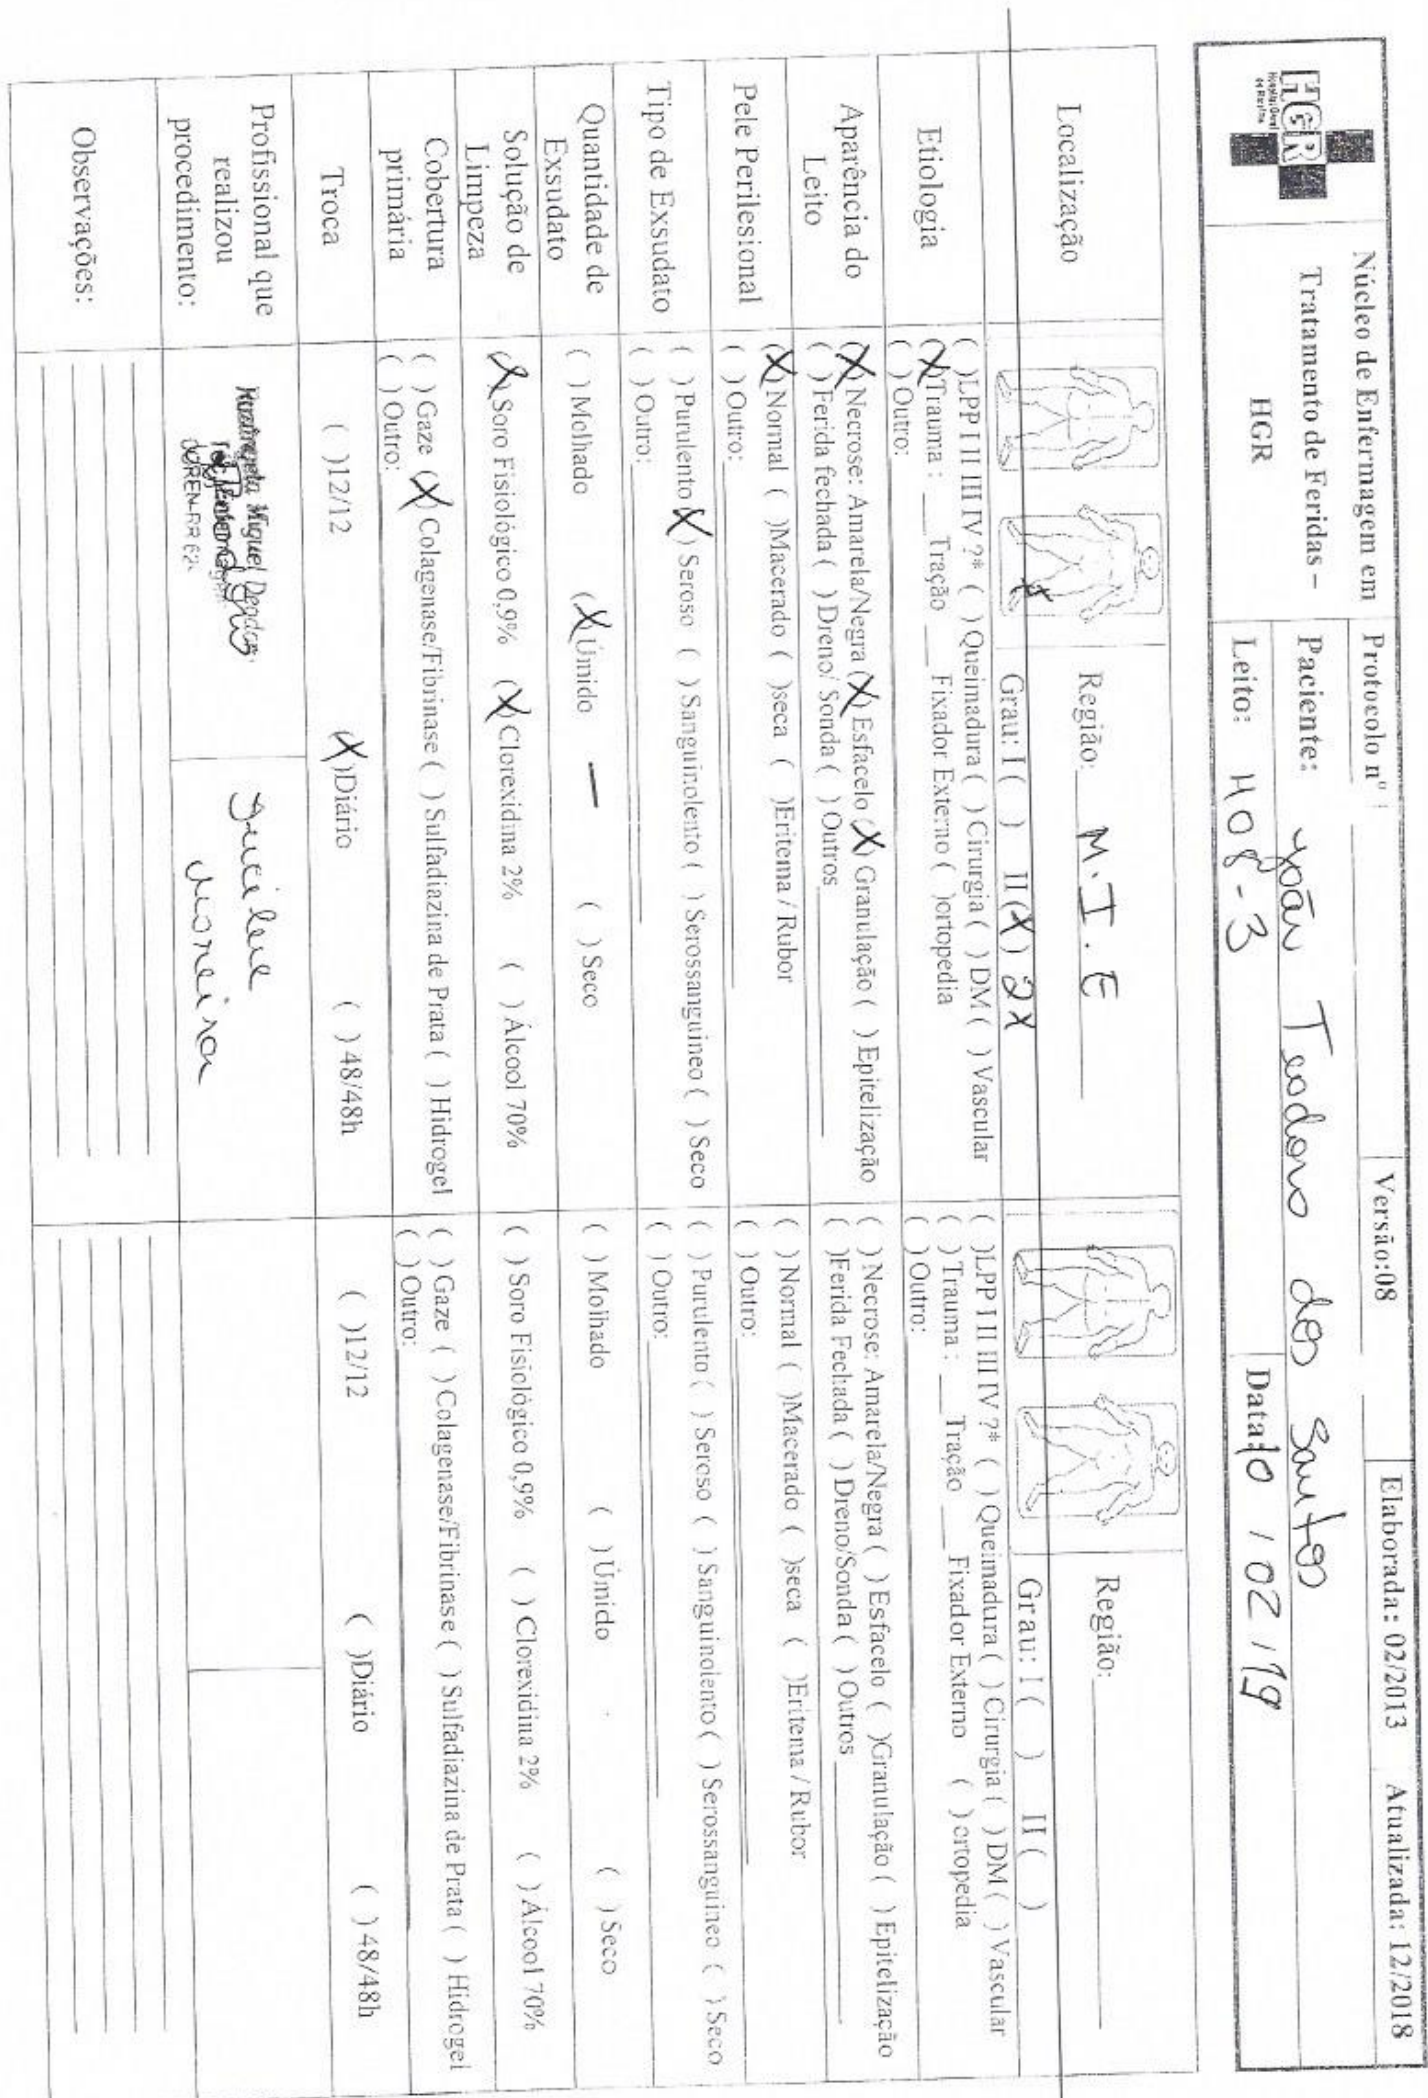 HGR
Hospital Geral
de Roraima
Núcleo de Enfermagem em
Tratamento de Feridas –
HGR
Protocolo nº
Versão:08
Elaborada: 02/2013 Atualizada: 12/2018
Paciente: João Teodoro dos Santos
Leito: 408-3
Data: 10 / 02 / 19
Localização
Região: M.I.E
Grau: I ( ) II (X) 2X
Região:
Grau: I ( ) II ( )
Etiologia
( )LPP I II III IV ?* ( ) Queimadura ( ) Cirurgia ( ) DM ( ) Vascular
(X)Trauma : Tração Fixador Externo ( )ortopedia
( ) Outro:
( )LPP I II III IV ?* ( ) Queimadura ( ) Cirurgia ( ) DM ( ) Vascular
( ) Trauma : Tração Fixador Externo ( ) ortopedia
( ) Outro:
Aparência do
Leito
(X) Necrose: Amarela/Negra (X) Esfacelo (X) Granulação ( ) Epitelização
( ) Ferida fechada ( ) Dreno/ Sonda ( ) Outros
( ) Necrose: Amarela/Negra ( ) Esfacelo ( )Granulação ( ) Epitelização
( )Ferida Fechada ( ) Dreno/Sonda ( ) Outros
Pele Perilesional
(X) Normal ( )Macerado ( )seca ( )Eritema / Rubor
( ) Outro:
( ) Normal ( )Macerado ( )seca ( )Eritema / Rubor
( ) Outro:
Tipo de Exsudato
( ) Purulento (X) Seroso ( ) Sanguinolento ( ) Serossanguineo ( ) Seco
( ) Outro:
( ) Purulento ( ) Seroso ( ) Sanguinolento ( ) Serossanguineo ( ) Seco
( ) Outro:
Quantidade de
Exsudato
( ) Molhado (X) Úmido — ( ) Seco
( ) Molhado ( ) Úmido ( ) Seco
Solução de
Limpeza
(X) Soro Fisiológico 0,9% (X) Clorexidina 2% ( ) Álcool 70%
( ) Soro Fisiológico 0,9% ( ) Clorexidina 2% ( ) Álcool 70%
Cobertura
primária
( ) Gaze (X) Colagenase/Fibrinase ( ) Sulfadiazina de Prata ( ) Hidrogel
( ) Outro:
( ) Gaze ( )Colagenase/Fibrinase ( ) Sulfadiazina de Prata ( ) Hidrogel
( ) Outro:
Troca
( )12/12 (X)Diário ( ) 48/48h
( )12/12 ( )Diário ( ) 48/48h
Profissional que
realizou
procedimento:
Miguel
COREN-RR 62
Jucilene
Moreira
Observações: